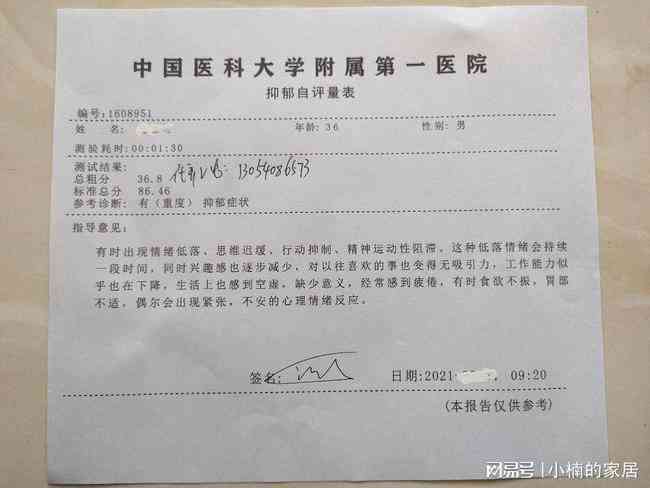 中国医科大学附属第一医院
抑郁自评量表
编号:1608951
姓 名: 年龄: 36 性别: 男
测验耗时:00:01:30
测试结果:
总粗分 36.8 13054086573
标准总分 86.46
参考诊断: 有（重度）抑郁症状
指导意见:
有时出现情绪低落、思维迟缓、行动抑制、精神运动性阻滞。这种低落情绪会持续
一段时间，同时兴趣感也逐步减少，对以往喜欢的事也变得无吸引力，工作能力似
乎也在下降，生活上也感到空虚，缺少意义，经常感到疲倦，有时食欲不振，胃部
不适，偶尔会出现紧张，不安的心理情绪反应。
签名: 日期:2021- 09:20
(本报告仅供参考)
网易号 | 小楠的家居